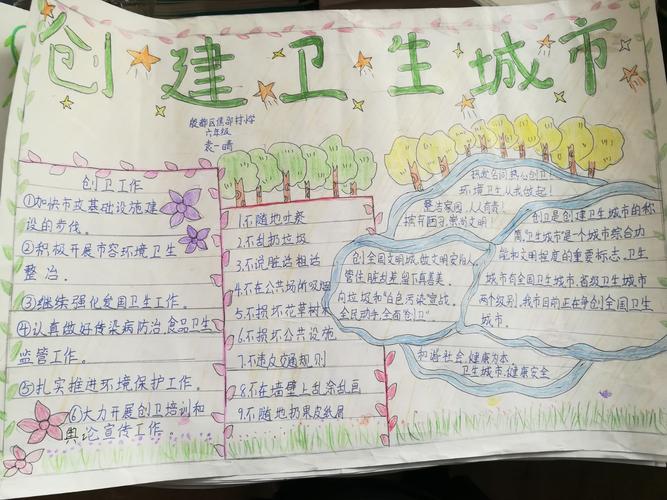 创建卫生城市
殷都区焦邵村小学
六年级
袁一晴
创卫工作
①加快市政基础设施建
设的步伐。
②积极开展市容环境卫生
整治。
③继续强化爱国卫生工作。
④认真做好传染病防治,食品卫生
监管工作。
⑤扎实推进环境保护工作。
⑥大力开展创卫培训和
舆论宣传工作。
1.不随地吐痰
2.不乱扔垃圾
3.不说脏话粗话
4.不在公共场所吸烟
5.不损坏花草树木
6.不损坏公共设施
7.不违反交通规则
8.不在墙壁上乱涂乱画
9.不随地扔果皮纸屑
热心创卫!
环境卫生从我做起!
整洁家园,人人有责!
文明!
创全国文明城,做文明安阳人
管住脏乱差,留下真善美。
向垃圾和"白色污染"宣战。
全民动手,全面"创卫"
创卫是创建卫生城市的称
卫生城市是一个城市综合功
能和文明程度的重要标志,卫生
城市有全国卫生城市、省级卫生城市
两个级别,我市目前正在争创全国卫生
城市。
和谐社会,健康为本
卫生城市,健康安全